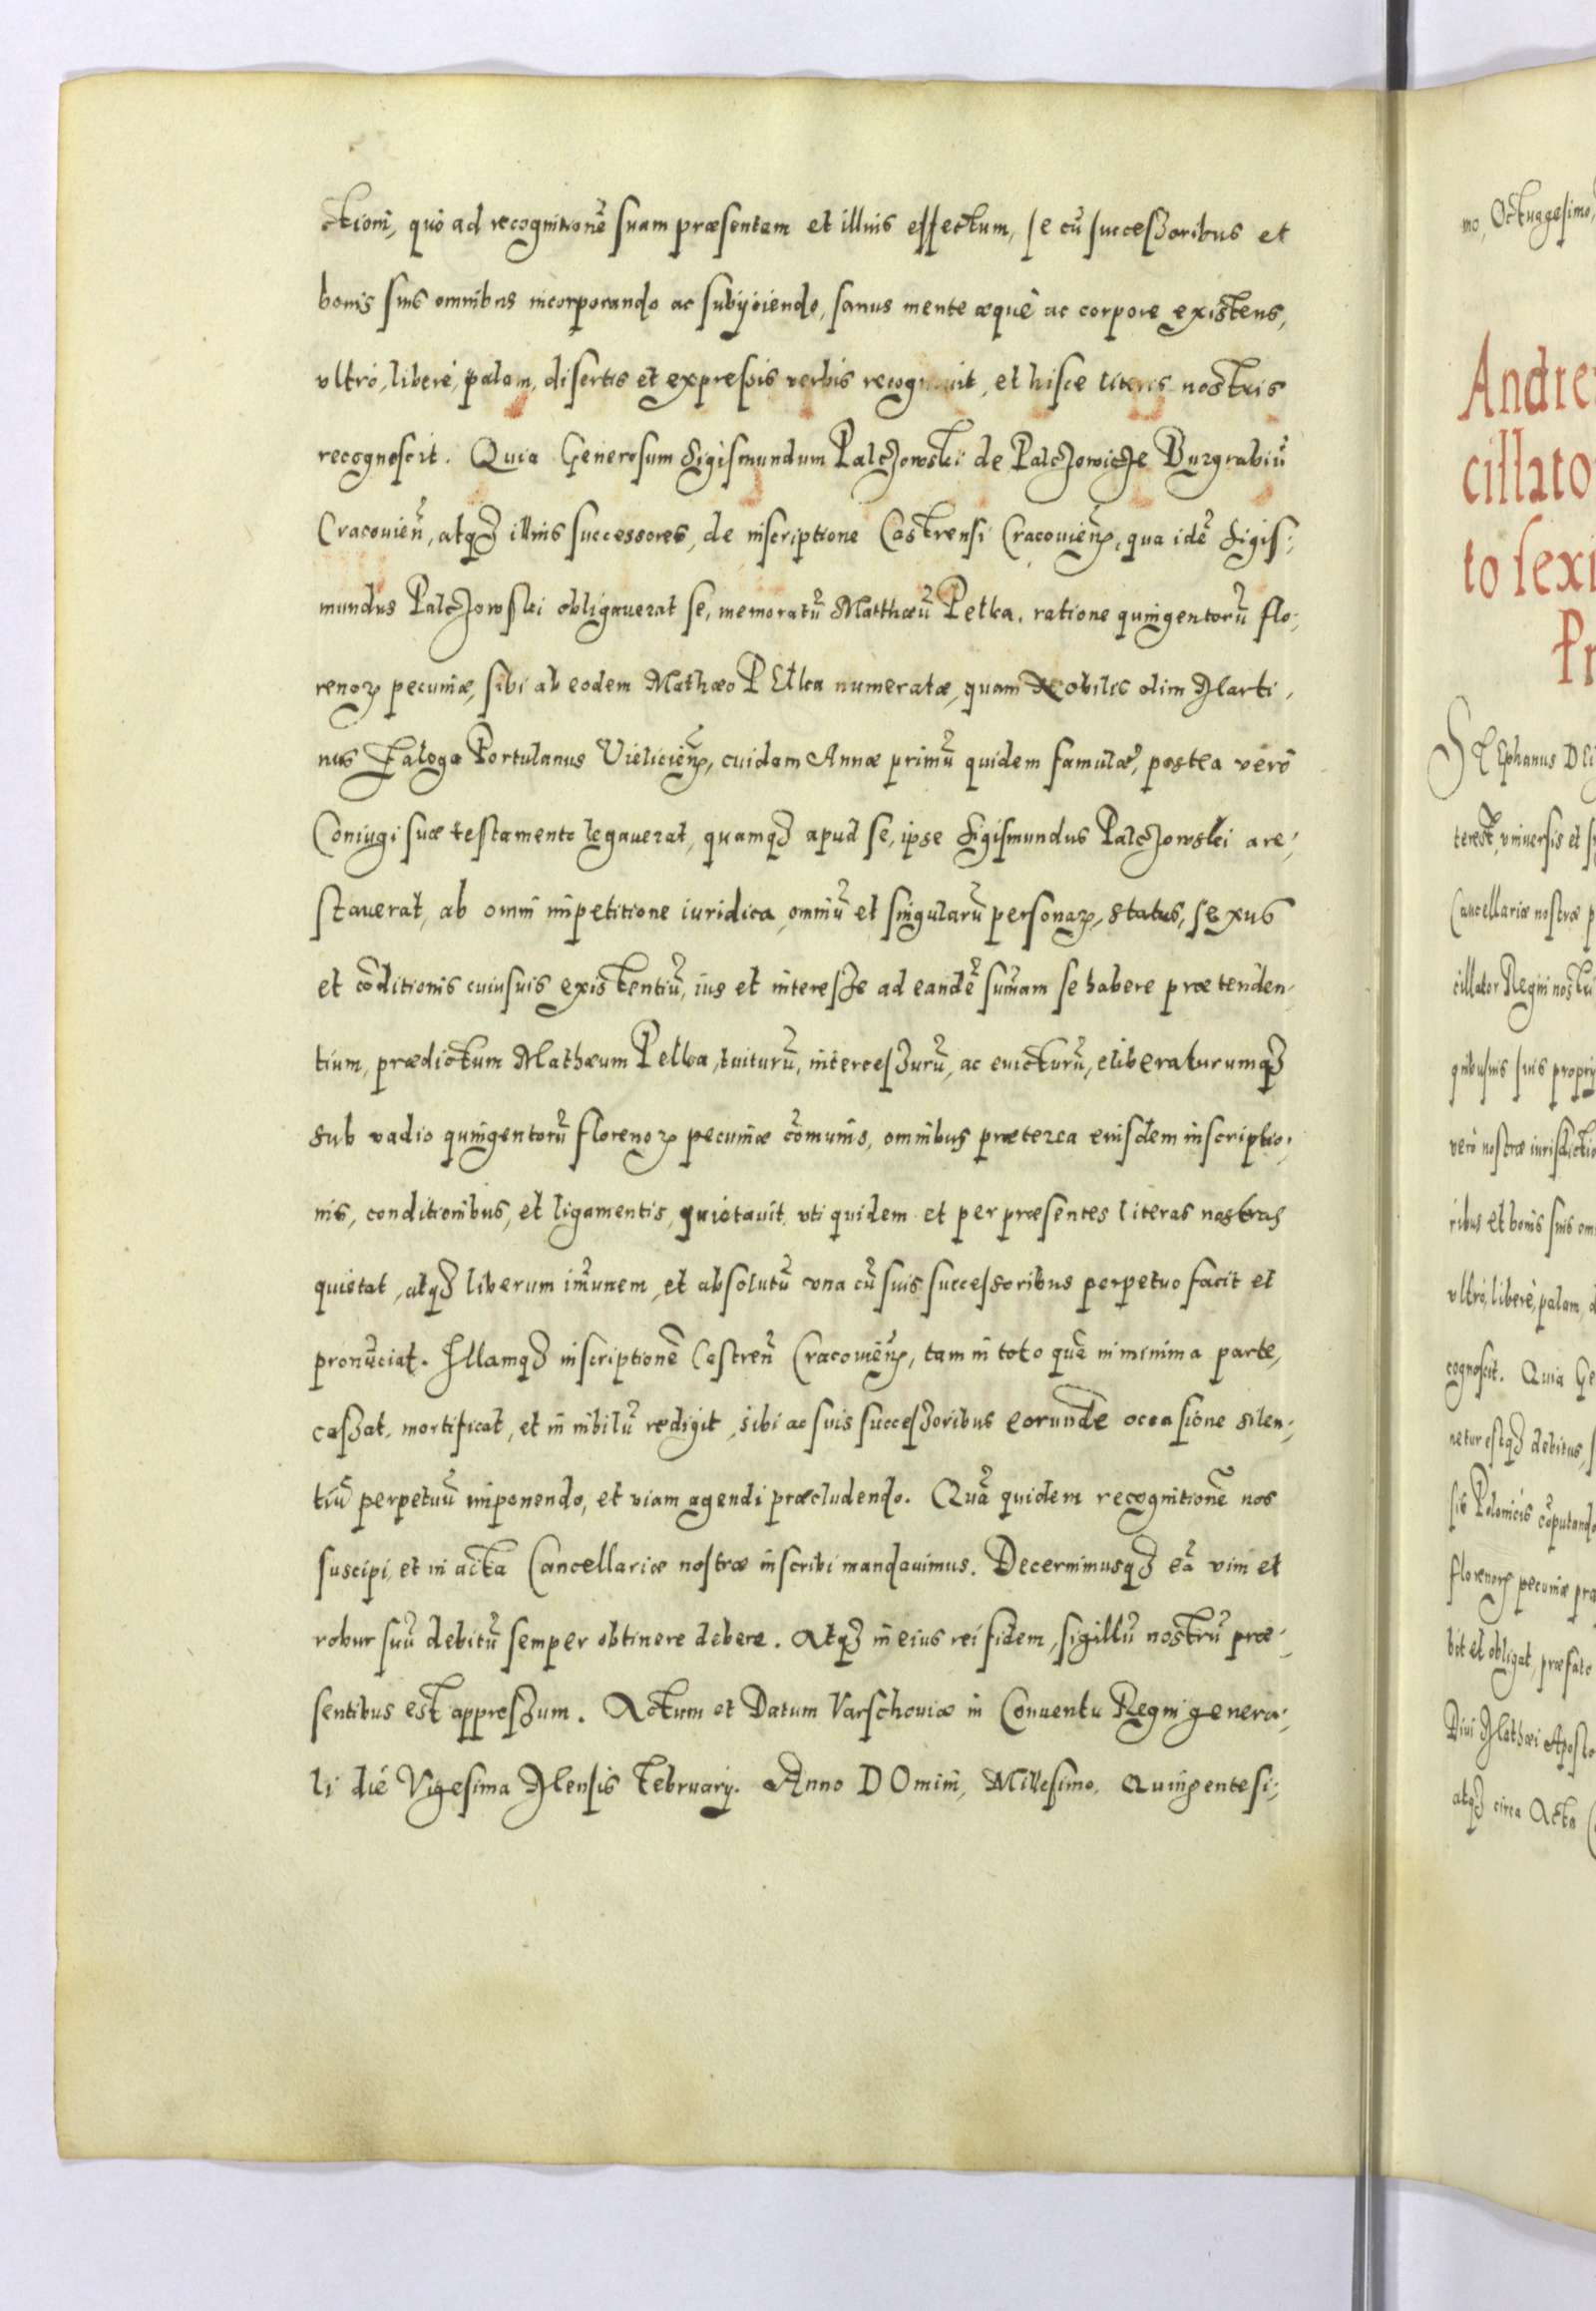 ctioni, quò ad recognitionẽ suam præsentem et illius effectum, se cũ successoribus et
bonis suis omnibus incorporando ac subijciendo, sanus mente æquè ac corpore existens,
vltrò, liberè, palam, disertis et expressis verbis recognouit, et hisce literis nostris
recognoscit. Quia Generosum Sigismundum Palczowski de Palczowicze Burgrabiũ
Cracouieñ, atqȝ illius successores, de inscriptione Castrensi Cracouieñ, qua idẽ Sigis-
mundus Palczowski obligauerat se, memoratũ Matthæũ Pelka, ratione quingentorũ flo-
renoꝝ pecuniæ, sibi ab eodem Mathæo PElka numeratæ, quam Nobilis olim Marti-
nus Zaloga Portulanus Vieliciẽn, cuidam Annæ primũ quidem famulæ, postea verò
Coniugi suæ testamento legauerat, quamqȝ apud se, ipse Sigismundus Palczowski are-
stauerat, ab omni impetitione iuridica, omniũ et singularũ personaꝝ, status, sexus
et cõditionis cuiusuis existentiũ, ius et interesse ad eandẽ sum̃am se habere prætenden-
tium, prædictum Mathæum Pelka, tuiturũ, intercessurũ, ac euicturũ, eliberaturumqȝ
sub vadio quingentorũ florenoꝝ pecuniæ com̃unis, omnibus præterea eiusdem inscriptio-
nis, conditionibus, et ligamentis, quietauit, vti quidem et per præsentes literas nostras
quietat, atqȝ liberum im̃unem, et absolutũ vna cũ suis successoribus perpetuo facit et
pronũciat. Illamqȝ inscriptionẽ Castreñ Cracouieñ, tam in toto quã in minima parte,
cassat, mortificat, et in nihilũ redigit, sibi ac suis successoribus eorundẽ occasione silen-
tiũ perpetuũ imponendo, et viam agendi præcludendo. Quã quidem recognitionẽ nos
suscipi, et in acta Cancellariæ nostræ inscribi mandauimus. Decernimusqȝ eã vim et
robur suũ debitũ semper obtinere debere. Atqȝ in eius rei fidem, sigillũ nostrũ præ-
sentibus est appressum. Actum et Datum Varschouiæ in Conuentu Regni genera-
li dié Vigesima Mensis February. Anno DOmini, Millesimo, Quingentesi-
mo, Octuagesimo,
Andre
cillato
to sexi
Pr
STEphanus DEi
terest, vniuersis et s
Cancellariæ nostræ p
cillator Regni nostri
quibusuis suis propry
verò nostræ iurisdictio
ribus et bonis suis om
vltrò, liberè, palam, d
cognoscit. Quia Ge
netur estqȝ debitus, s
sis Polonicis cõputando
florenoꝝ pecuniæ pra
bit et obligat, præfato
Diui Mathæi Aposto
atqȝ circa Acta C